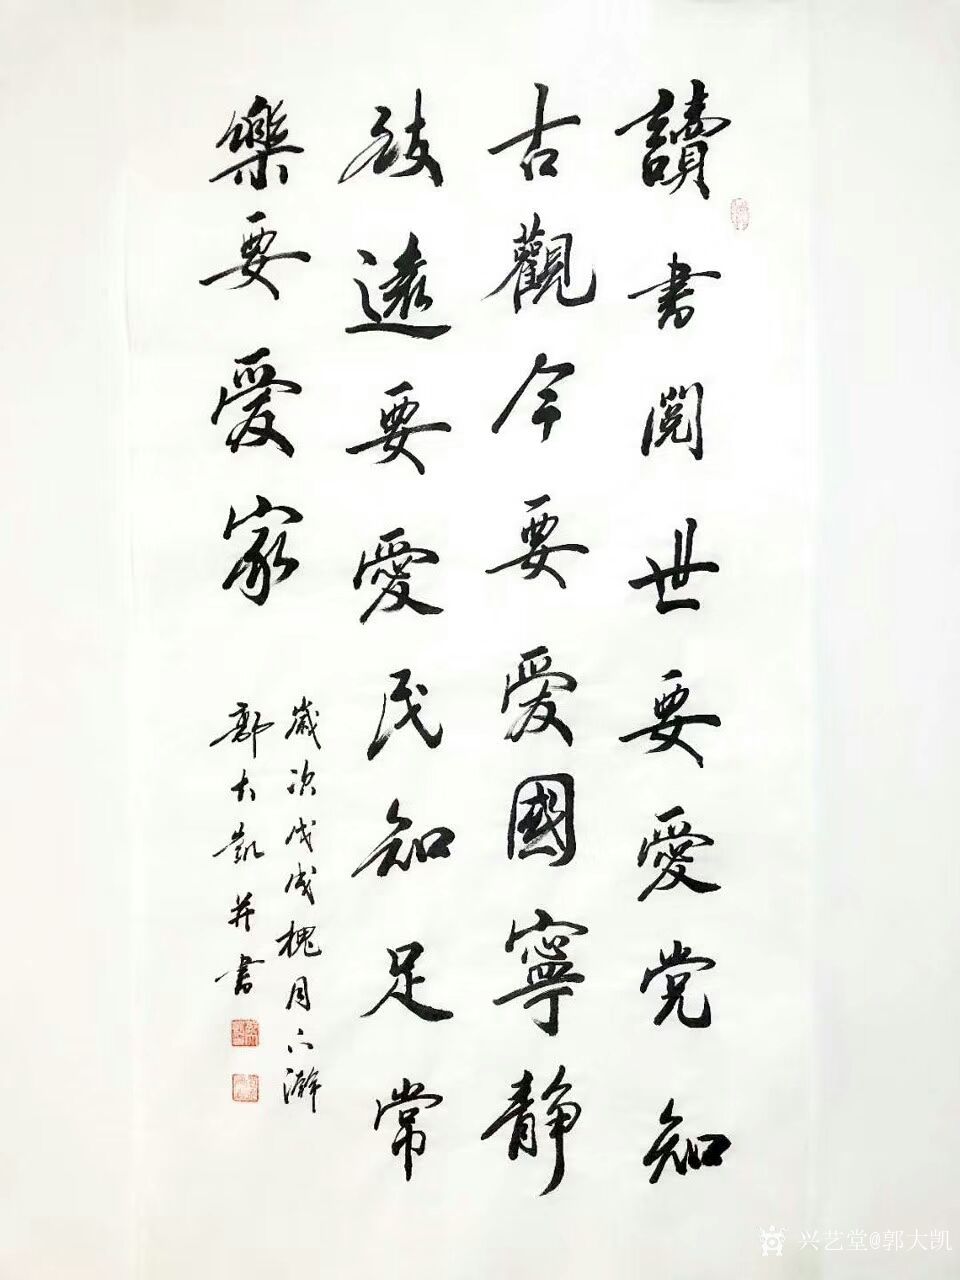 讀書閱世要愛党知
古觀今要愛國寧靜
致遠要愛民知足常
樂要愛家
歲次戊戌槐月下澣
郭大凱并書
兴艺堂@郭大凯